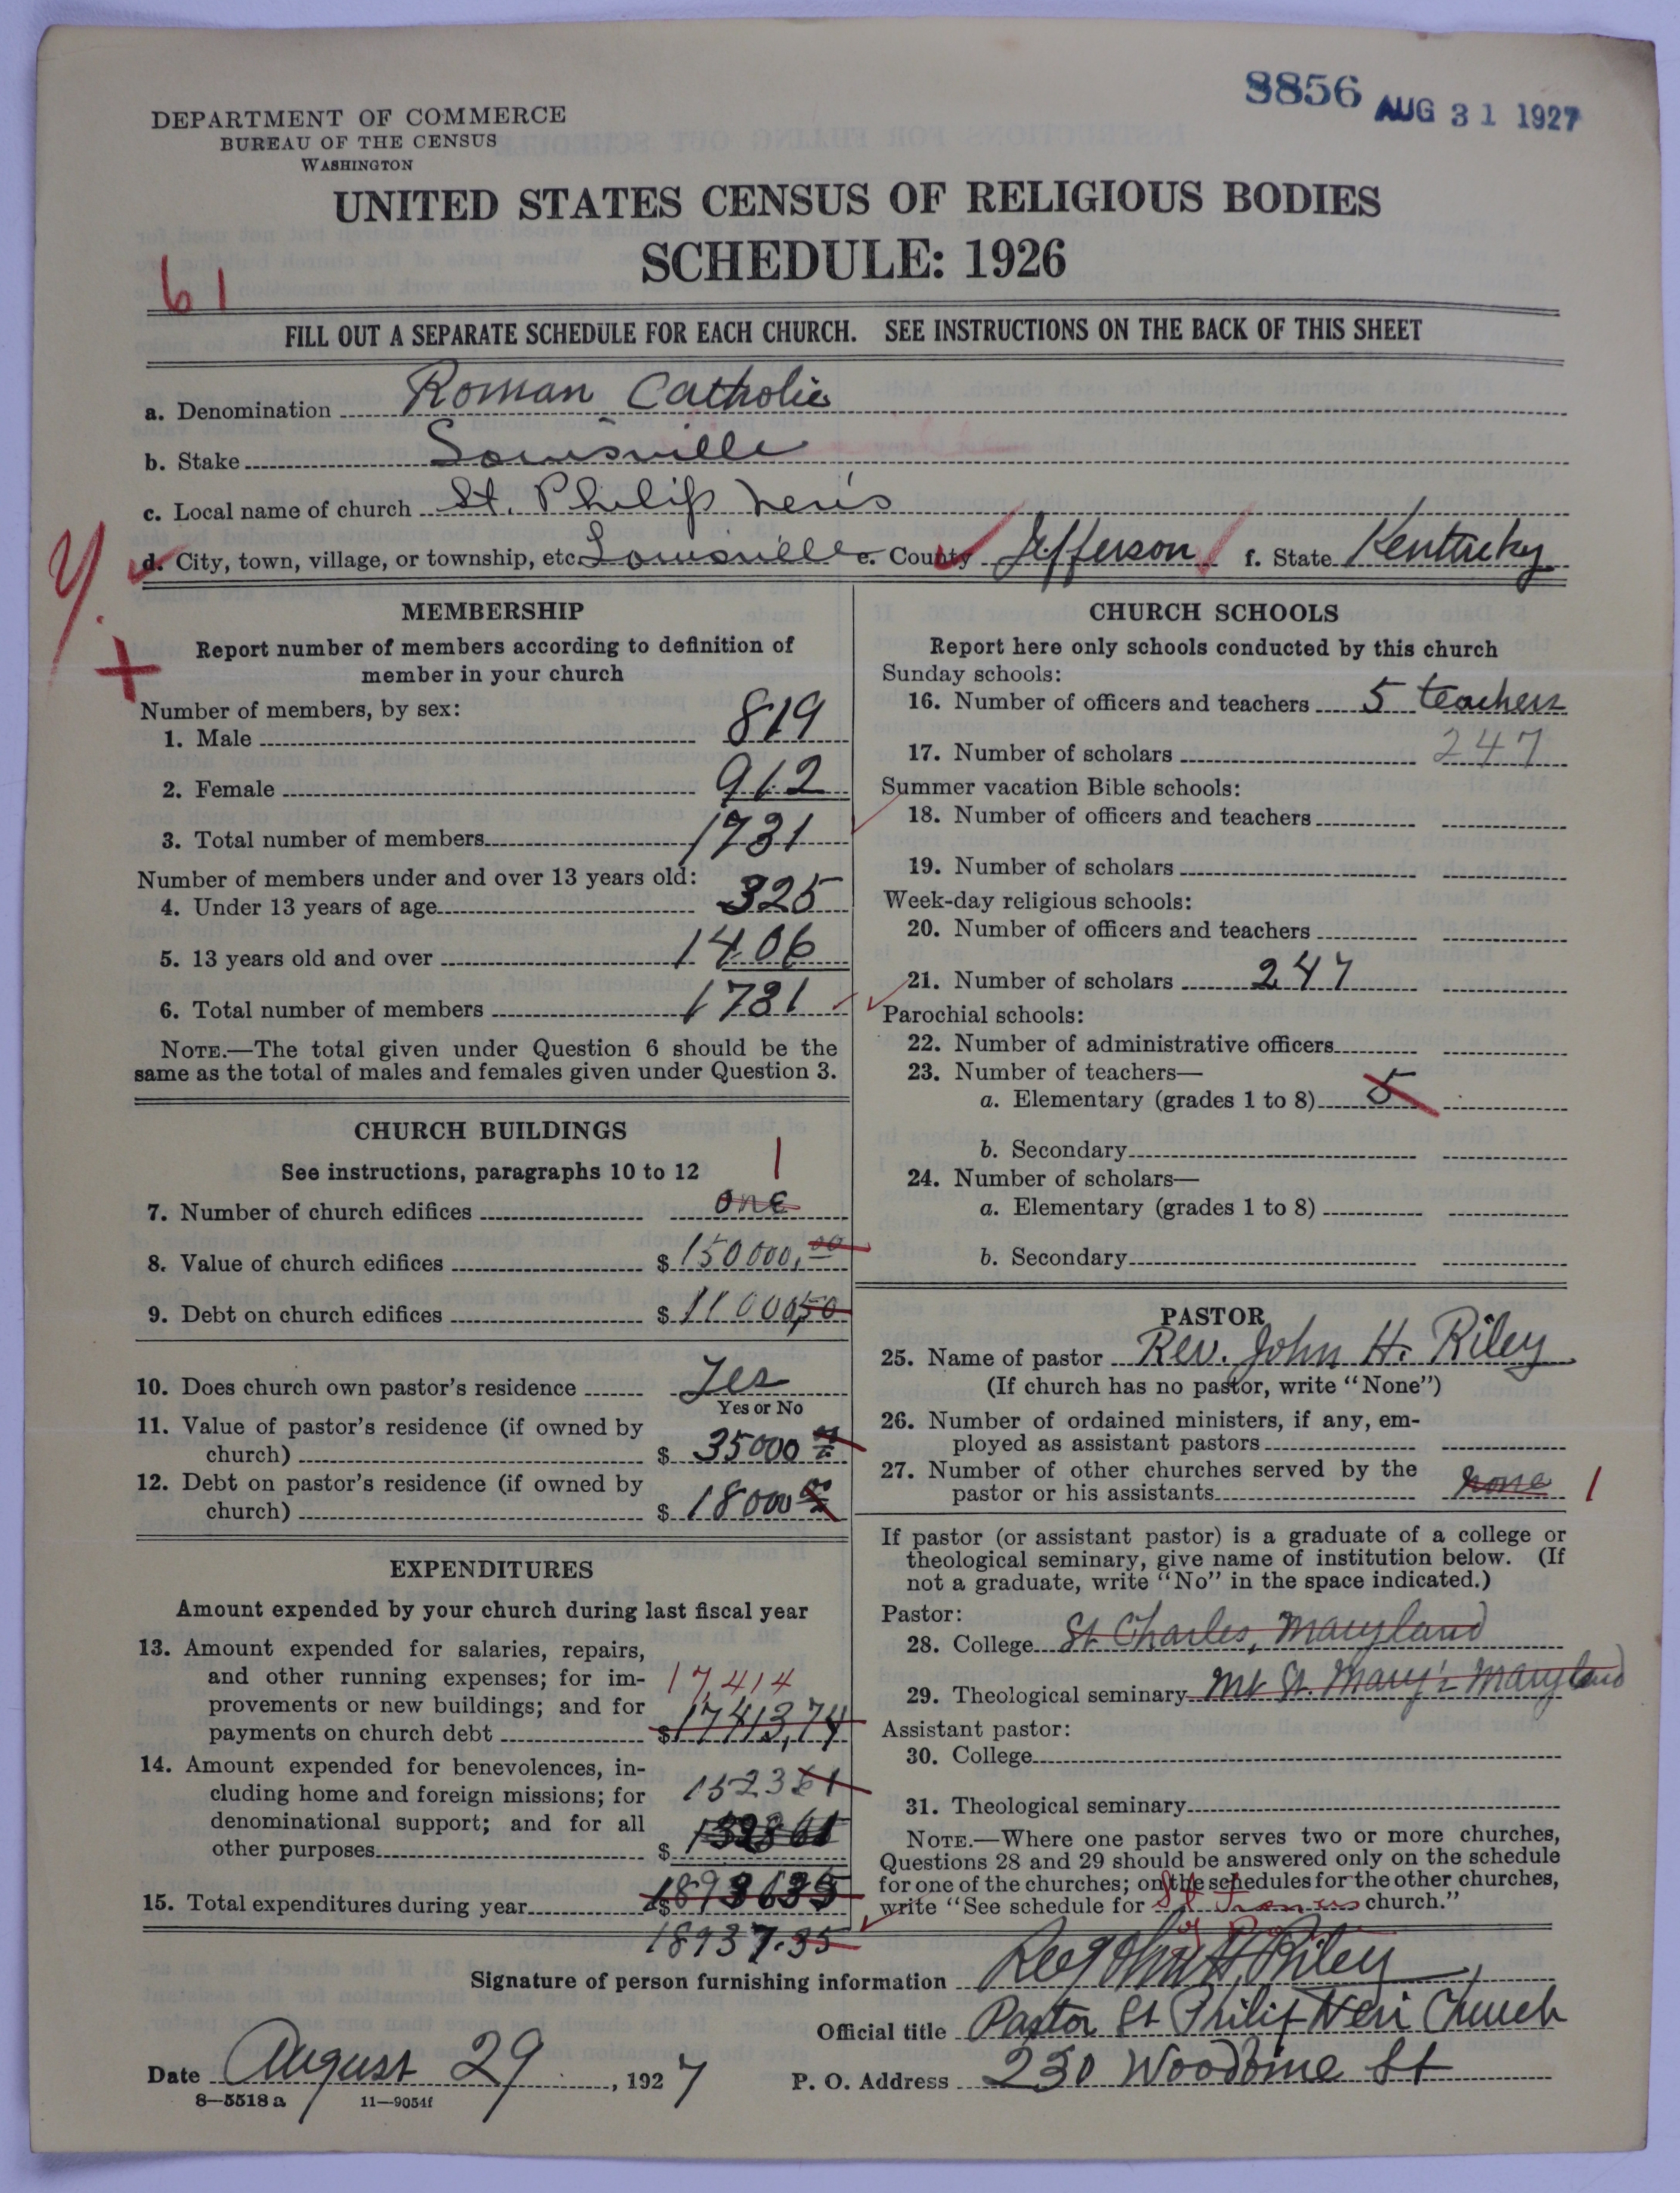 8856 AUG 31 1927
DEPARTMENT OF COMMERCE
BUREAU OF THE CENSUS
WASHINGTON
UNITED STATES CENSUS OF RELIGIOUS BODIES
SCHEDULE: 1926
61
FILL OUT A SEPARATE SCHEDULE FOR EACH CHURCH. SEE INSTRUCTIONS ON THE BACK OF THIS SHEET
a. Denomination Roman Catholic
b. Stake Louisville
c. Local name of church St. Philip Neri's
d. City, town, village, or township, etc. Louisville e. County Jefferson f. State Kentucky
MEMBERSHIP
Report number of members according to definition of
member in your church
Number of members, by sex:
1. Male 819
2. Female 912
3. Total number of members 1731
Number of members under and over 13 years old:
4. Under 13 years of age 325
5. 13 years old and over 1406
6. Total number of members 1731
NOTE.—The total given under Question 6 should be the
same as the total of males and females given under Question 3.
CHURCH BUILDINGS
See instructions, paragraphs 10 to 12 1
7. Number of church edifices one
8. Value of church edifices $150000,00
9. Debt on church edifices $
10. Does church own pastor's residence Yes
Yes or No
11. Value of pastor's residence (if owned by
church) $ 35000
12. Debt on pastor's residence (if owned by
church) $ 18000
EXPENDITURES
Amount expended by your church during last fiscal year
13. Amount expended for salaries, repairs,
and other running expenses; for im-
provements or new buildings; and for 17,414
payments on church debt $17413,74
14. Amount expended for benevolences, in-
cluding home and foreign missions; for 152361
denominational support; and for all
other purposes $
15. Total expenditures during year $1893635
18937.35
CHURCH SCHOOLS
Report here only schools conducted by this church
Sunday schools:
16. Number of officers and teachers 5 teachers
17. Number of scholars 247
Summer vacation Bible schools:
18. Number of officers and teachers
19. Number of scholars
Week-day religious schools:
20. Number of officers and teachers
21. Number of scholars 247
Parochial schools:
22. Number of administrative officers
23. Number of teachers—
a. Elementary (grades 1 to 8) 5
b. Secondary
24. Number of scholars—
a. Elementary (grades 1 to 8)
b. Secondary
PASTOR
25. Name of pastor Rev. John H. Riley
(If church has no pastor, write "None")
26. Number of ordained ministers, if any, em-
ployed as assistant pastors
27. Number of other churches served by the
pastor or his assistants none 1
If pastor (or assistant pastor) is a graduate of a college or
theological seminary, give name of institution below. (If
not a graduate, write "No" in the space indicated.)
Pastor:
28. College St Charles, Maryland
29. Theological seminary Mt St. Mary's Maryland
Assistant pastor:
30. College
31. Theological seminary
NOTE.—Where one pastor serves two or more churches,
Questions 28 and 29 should be answered only on the schedule
for one of the churches; on the schedules for the other churches,
write "See schedule for St church."
Signature of person furnishing information Rev John H. Riley,
Official title Pastor St Philip Neri Church
Date August 29, 1927 P. O. Address 230 Woodbine St
8—5518 a 11—9054f